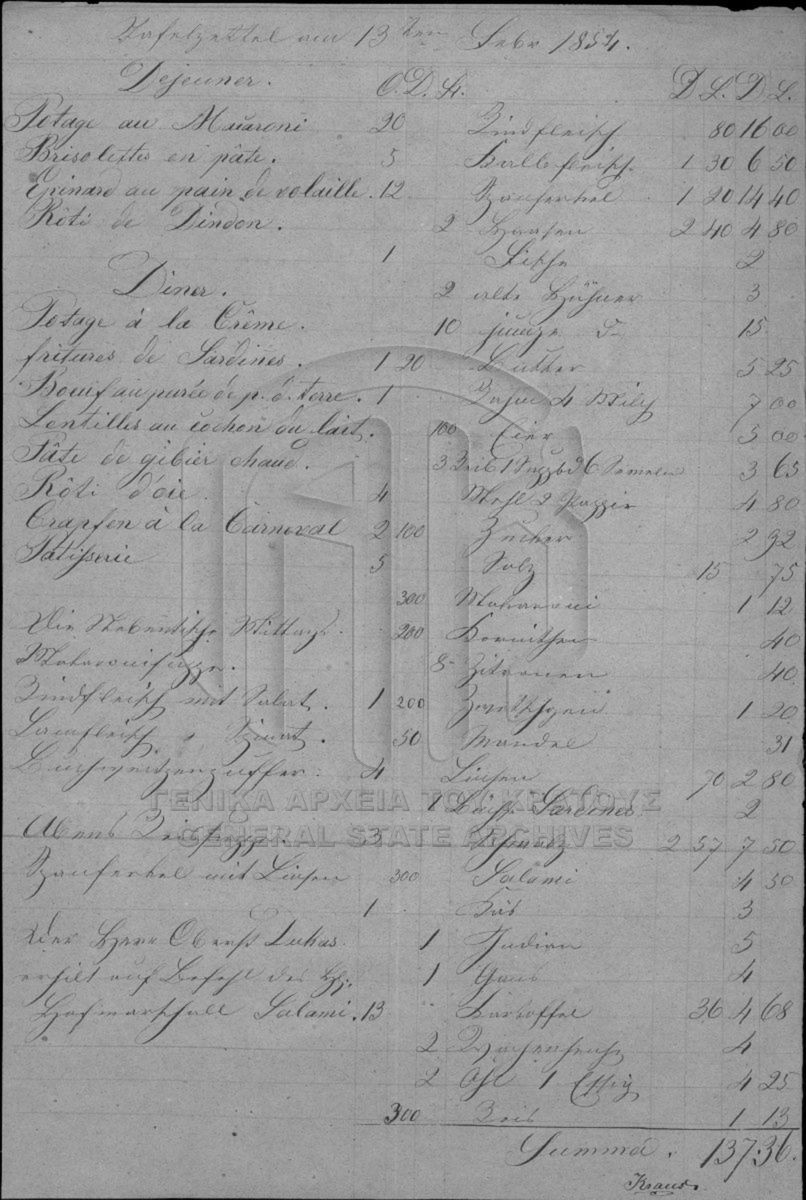 Tafelzettel am 13ten Febr 1854.
Dejeuner. O. D. St. D. L. D. L.
Potage au Macaroni 20 Rindfleisch 80 16 00
Brisolettes en pâte. 5 Kalbfleisch 1 30 6 50
Epinard au pain de volaille. 12 Spanferkel 1 20 14 40
Rôti de Dindon. 2 Haasen 2 40 4 80
1 Fische 2
Diner. 2 alte Hühner 3
Potage à la Crême. 10 junge do 15
fritures de Sardines. 1 20 Butter 5 25
Boeuf au purée de p. d. terre. 1 4 Milch 7 00
Lentilles au cochon du lait. 100 Eier 5 00
Pâte de gibier chaud. 3 6 Semeln 3 65
Rôti d'oie 4 Mehl 2 4 80
Crapfen à la Carneval 2 100 Zucker 2 92
Patisserie 5 Salz 15 75
300 Makaroni 1 12
Die Mittags. 200 Korinthen 40
Makaronisuppe. 8 Zitronen 40
Rindfleisch mit Salat. 1 200 Zwetschgen 1 20
Lamfleisch " Spinat. 50 Mandel 31
4 Linsen 70 2 80
1 Büchs Sardines 2
Abens Reissuppe. 3 Schmalz 2 57 7 50
Spanferkel mit Linsen 300 Salami 4 50
1 Käs 3
Der Herr Oberst Lukas 1 Indian 5
erhilt auf Befehl des H: 1 Gans 4
Hofmarschall Salami. 13 Kartoffel 36 4 68
2 4
2 Öhl 1 Essig 4 25
300 Reis 1 13
Summa. 137 36.
Kraus.
ΓΕΝΙΚΑ ΑΡΧΕΙΑ ΤΟΥ ΚΡΑΤΟΥΣ
GENERAL STATE ARCHIVES